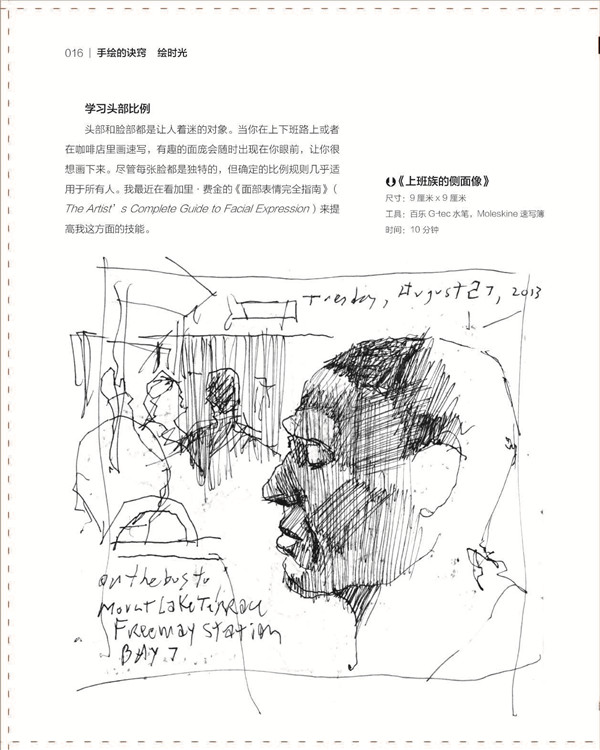 016 | 手绘的诀窍 绘时光
学习头部比例
头部和脸部都是让人着迷的对象。当你在上下班路上或者
在咖啡店里画速写,有趣的面庞会随时出现在你眼前,让你很
想画下来。尽管每张脸都是独特的,但确定的比例规则几乎适
用于所有人。我最近在看加里·费金的《面部表情完全指南》(
The Artist’s Complete Guide to Facial Expression)来提
高我这方面的技能。
《上班族的侧面像》
尺寸:9 厘米 x 9 厘米
工具:百乐 G-tec 水笔,Moleskine 速写簿
时间:10 分钟
Tuesday, August 27, 2013
on the bus to
Mount Lake Terrace
Freeway Station
BAY 7